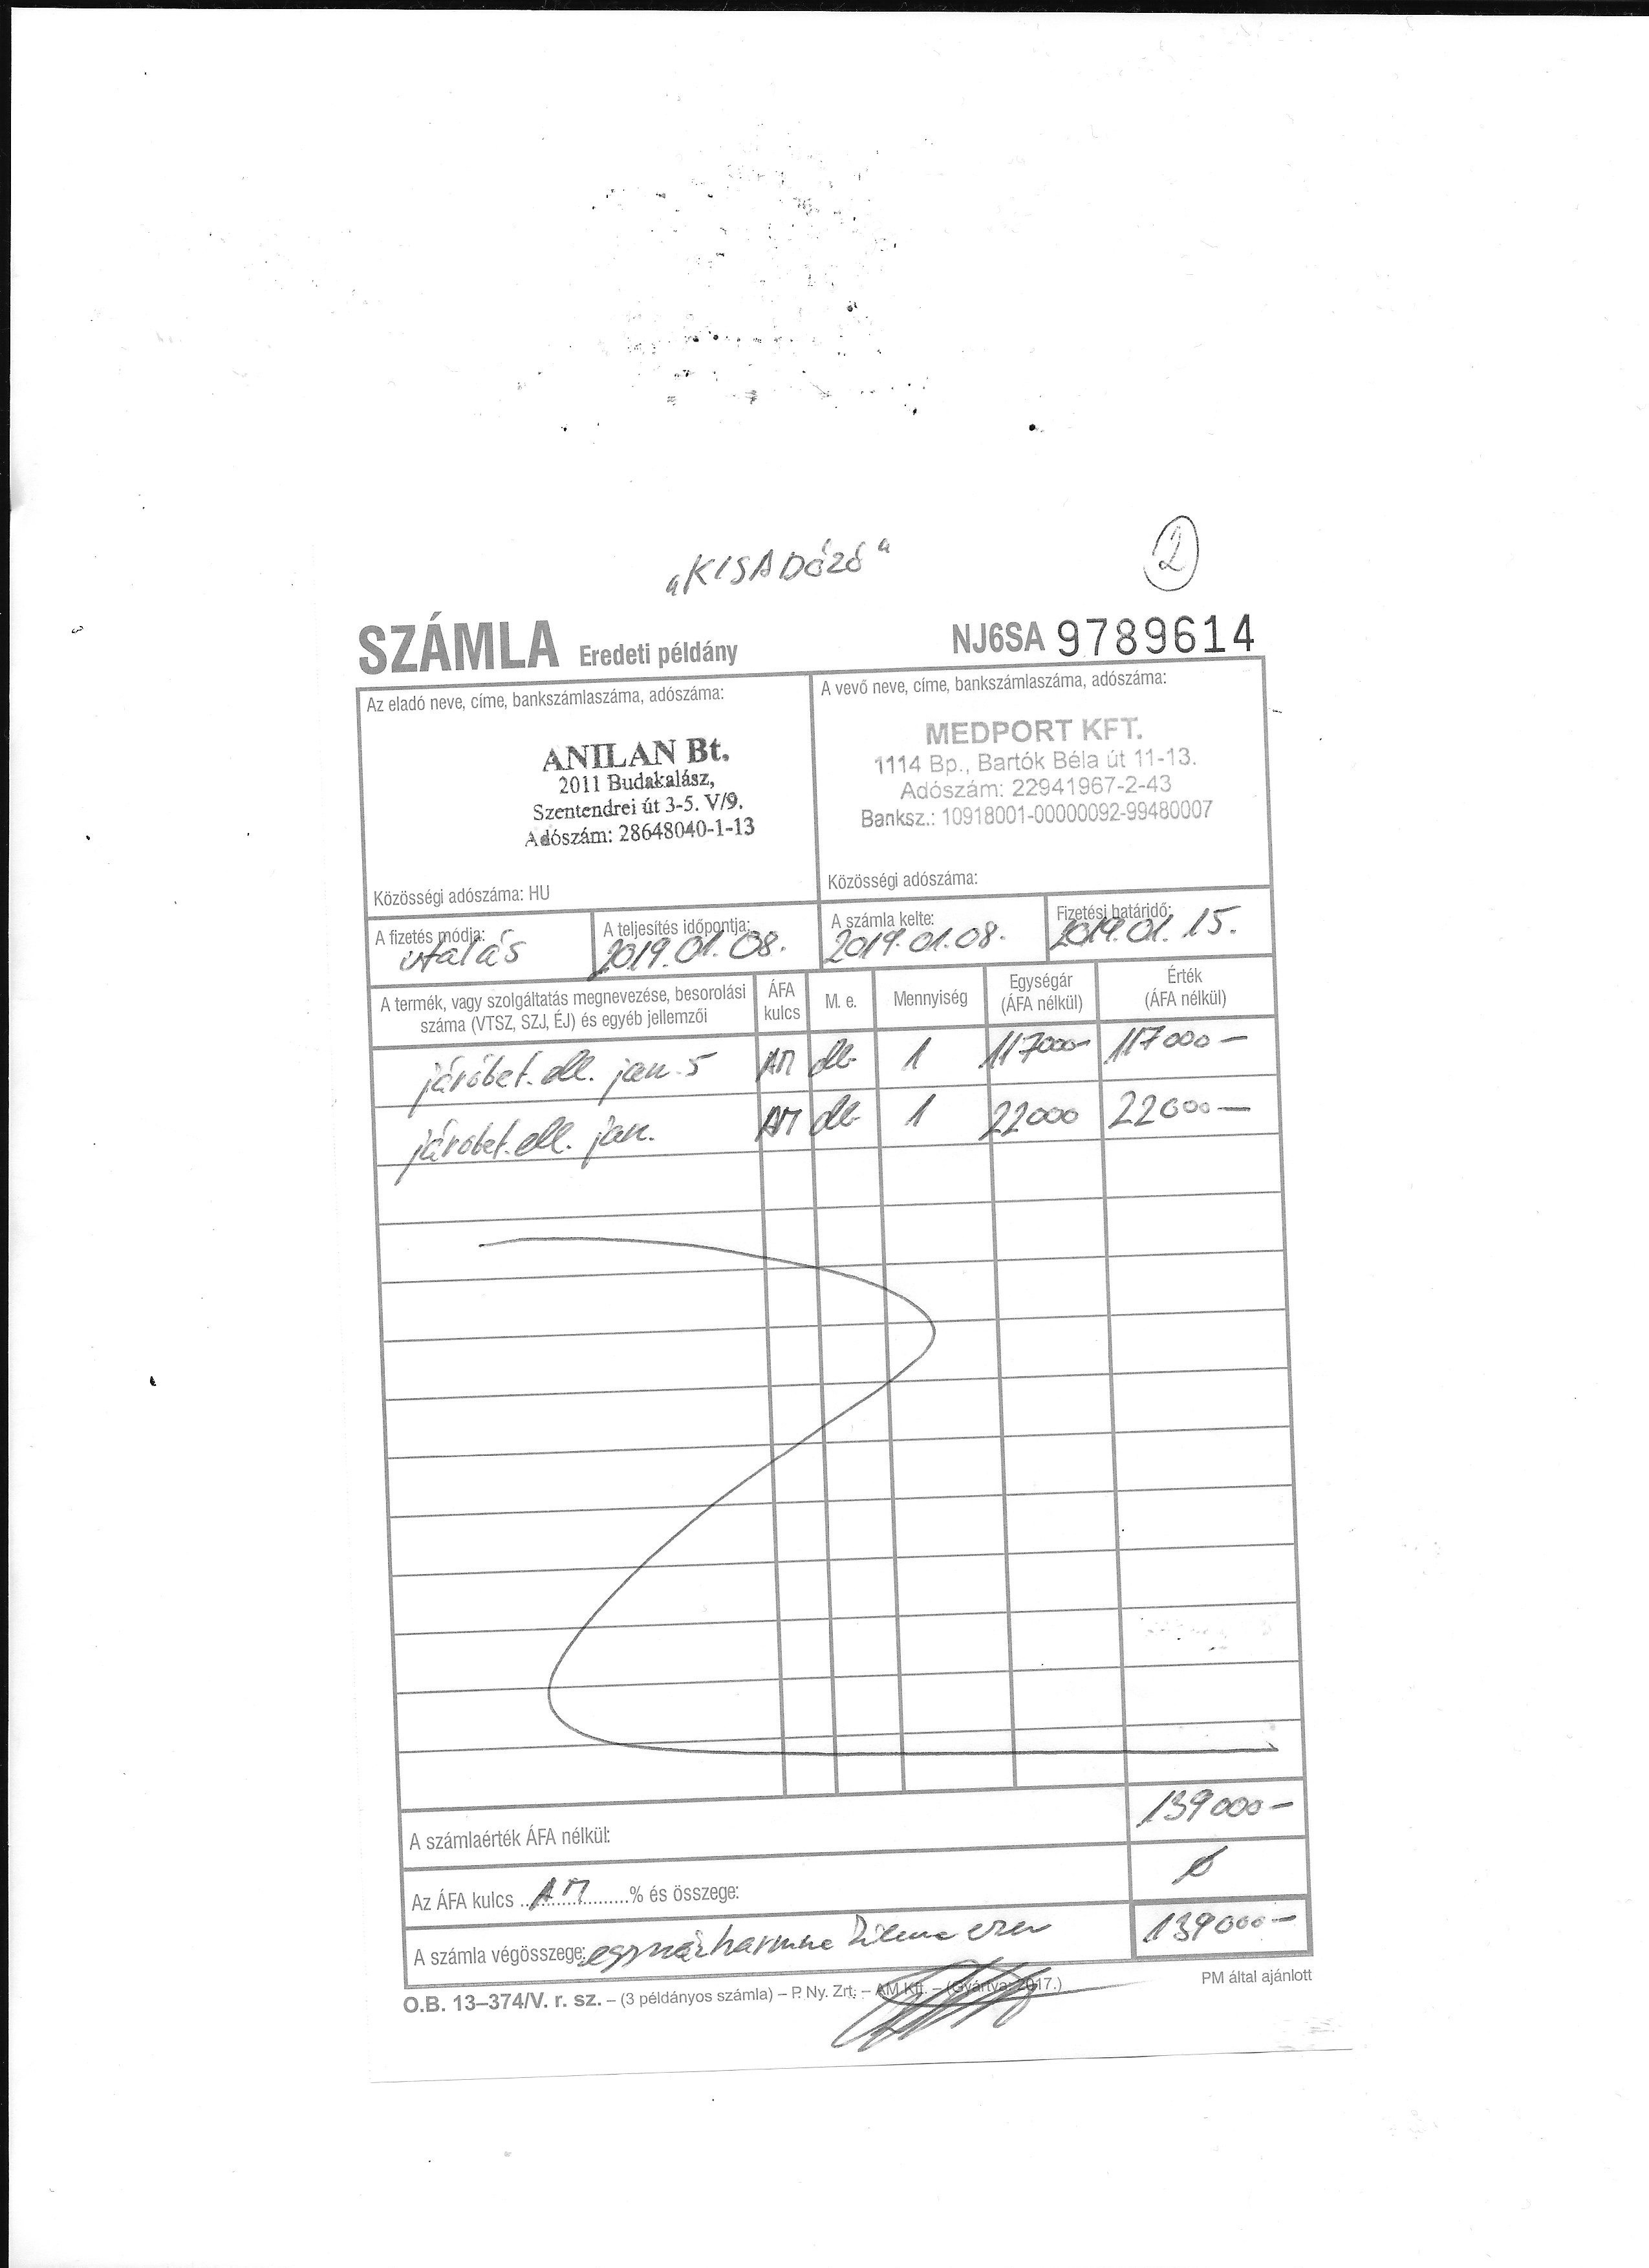 „KISADÓZÓ"
2
SZÁMLA Eredeti példány
NJ6SA 9789614
Az eladó neve, címe, bankszámlaszáma, adószáma:
ANILAN Bt.
2011 Budakalász,
Szentendrei út 3-5. V/9.
Adószám: 28648040-1-13
Közösségi adószáma: HU
A vevő neve, címe, bankszámlaszáma, adószáma:
MEDPORT KFT.
1114 Bp., Bartók Béla út 11-13.
Adószám: 22941967-2-43
Banksz.: 10918001-00000092-99480007
Közösségi adószáma:
A fizetés módja:
utalás
A teljesítés időpontja:
2019.01.08.
A számla kelte:
2019.01.08.
Fizetési határidő:
2019.01.15.
A termék, vagy szolgáltatás megnevezése, besorolási
száma (VTSZ, SZJ, ÉJ) és egyéb jellemzői
ÁFA
kulcs
M. e.
Mennyiség
Egységár
(ÁFA nélkül)
Érték
(ÁFA nélkül)
járóbet. ell. jan. 5 AM db 1 117000- 117000-
járóbet. ell. jan. AM db 1 22000 22000-
A számlaérték ÁFA nélkül: 139000-
Az ÁFA kulcs AM % és összege: Ø
A számla végösszege: egyszázharminc ezer 139000-
O.B. 13–374/V. r. sz. – (3 példányos számla) – P. Ny. Zrt. – AM Kft. – (Gyártva: 2017.)
PM által ajánlott